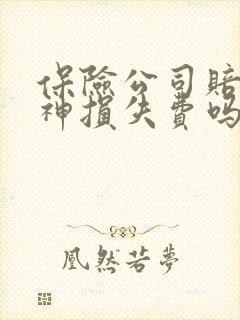 保險公司賠
神損失費嗎
凰然若夢